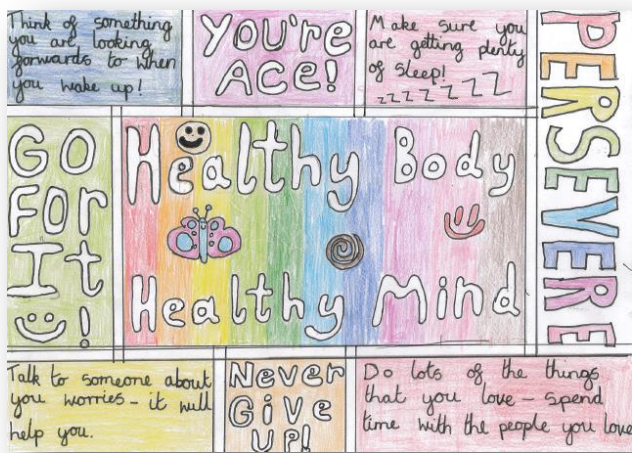 Think of something
you are looking
forwards to when
you wake up!
YOU'RE
ACE!
Make sure you
are getting plenty
of sleep!
zzzzzzz
PERSEVERE
GO
FOR
It
!
Healthy Body
Healthy Mind
Talk to someone about
you worries - it will
help you.
Never
Give
UP!
Do lots of the things
that you love - spend
time with the people you love